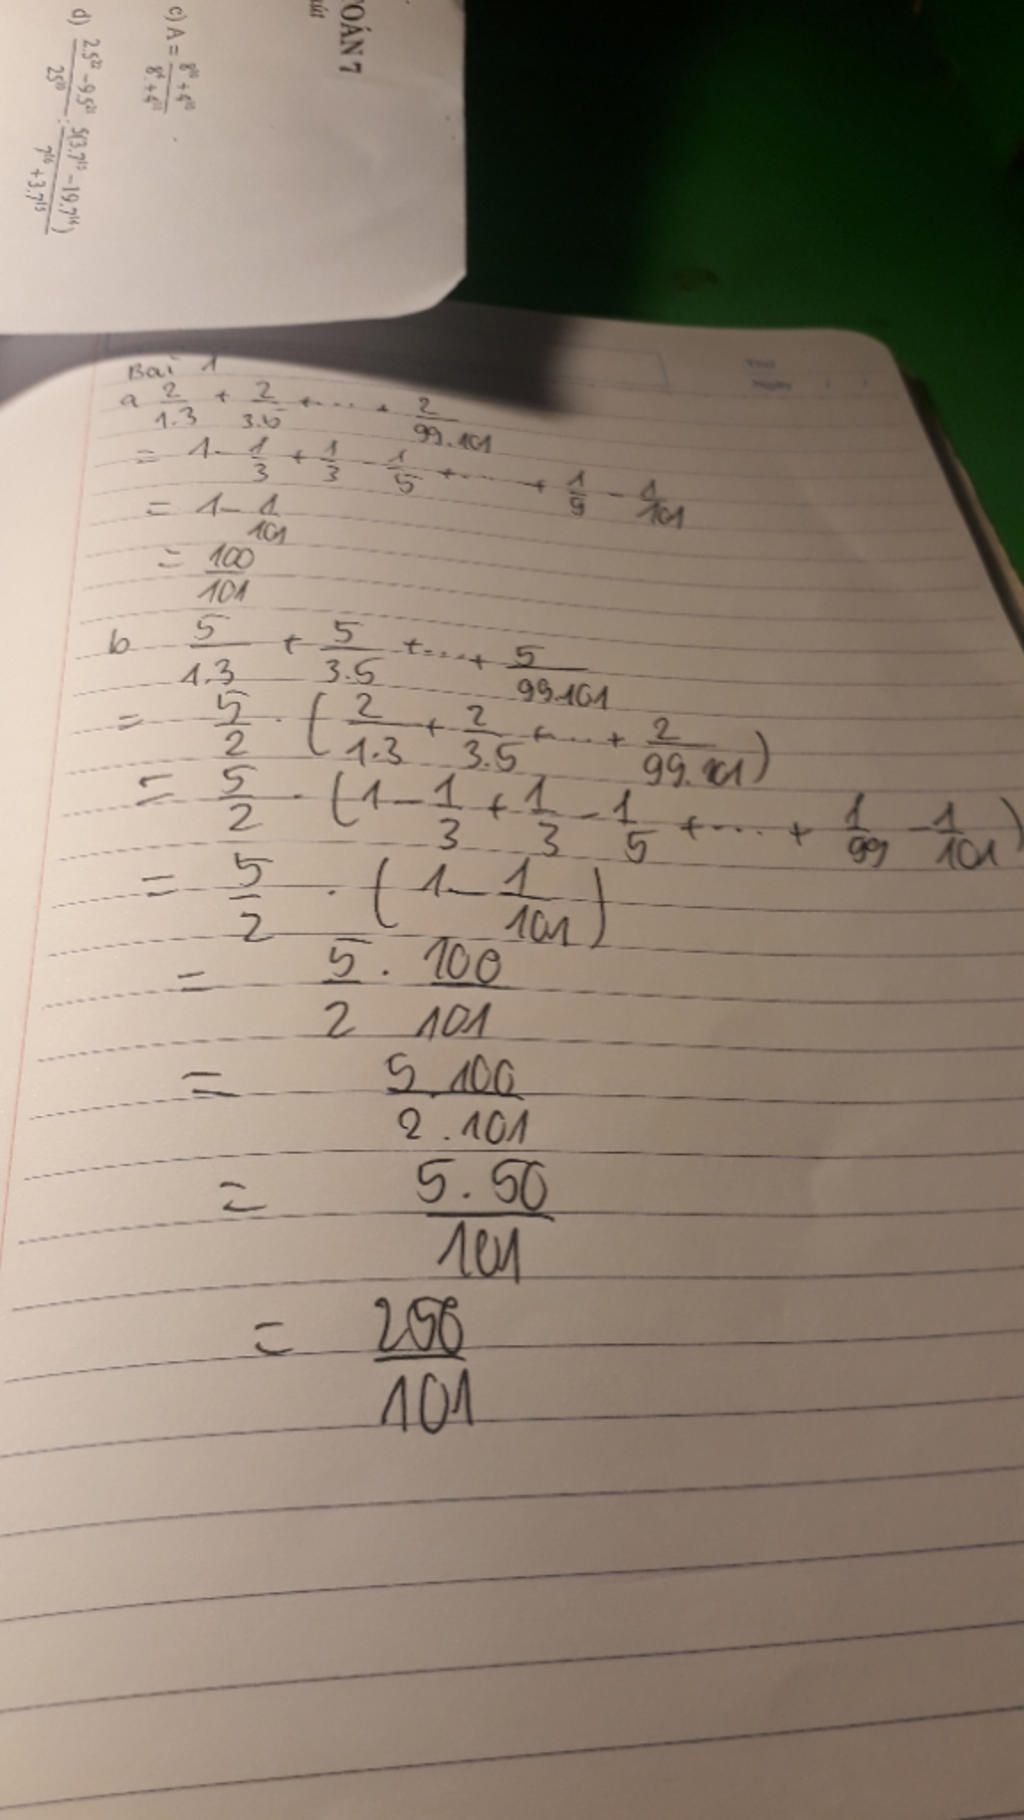 TOÁN 7
út
c) A = (8¹⁰ + 4¹⁰)/(8⁴ + 4¹¹)
d) (2.5²² - 9.5²¹)/25¹⁰ : 5(3.7¹⁵ - 19.7¹⁴)/(7¹⁶ + 3.7¹⁵)
Thứ
Ngày / /
Bai 1
a 2/1.3 + 2/3.5 + ... + 2/99.101
= 1 - 1/3 + 1/3 - 1/5 + ... + 1/9 - 1/101
= 1 - 1/101
= 100/101
b 5/1.3 + 5/3.5 + ... + 5/99.101
= 5/2 . (2/1.3 + 2/3.5 + ... + 2/99.101)
= 5/2 . (1 - 1/3 + 1/3 - 1/5 + ... + 1/99 - 1/101)
= 5/2 . (1 - 1/101)
= 5/2 . 100/101
= 5.100/2.101
= 5.50/101
= 250/101